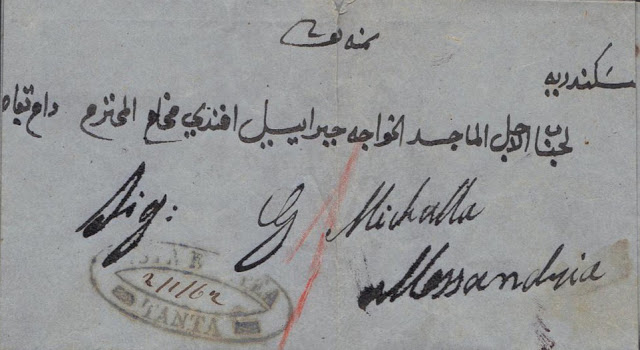 بمنه تعالى
سكندريه
لجناب الاجل الماجد الخواجه جبرائيل افندي مخلع المحترم دام بقاه
Sig: G Michalla
Alessandria
POSTA EUROPEA
2/1/62
TANTA